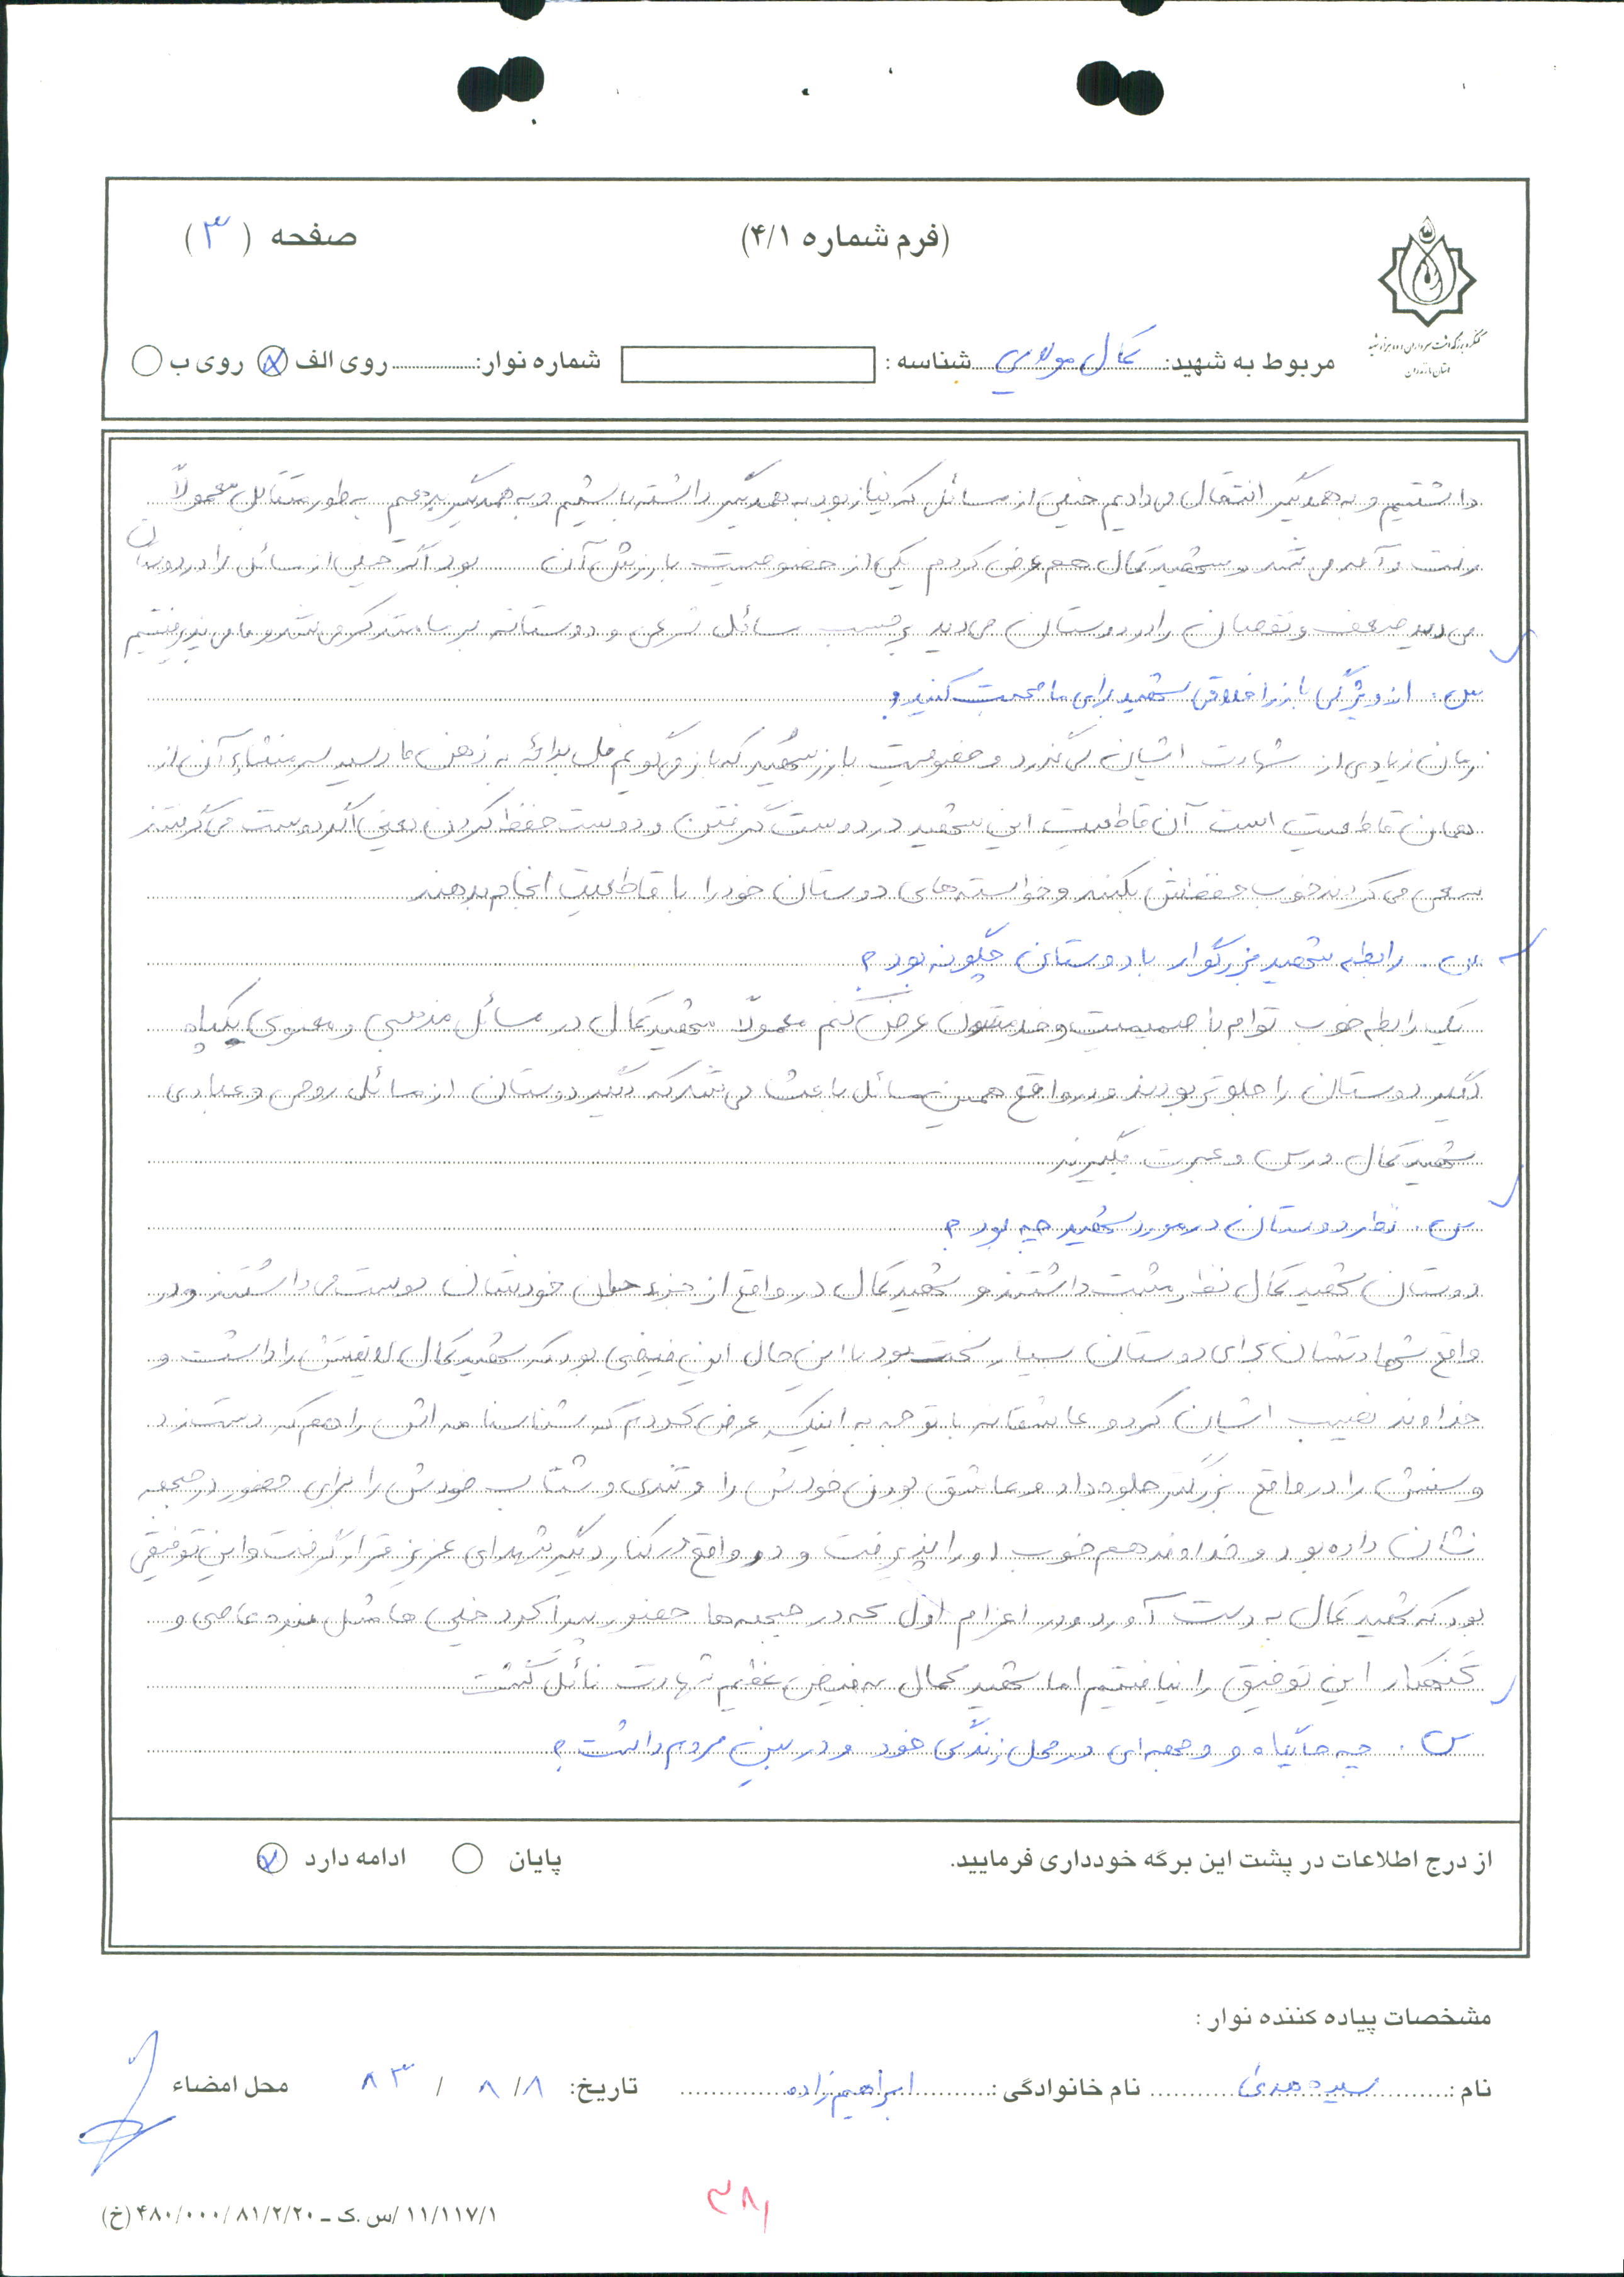 (فرم شماره ۴/۱)
صفحه (۳)
کنگره بزرگداشت سرداران و ده هزار شهید
استان مازندران
مربوط به شهید: کمال مولایی شناسه: شماره نوار: روی الف روی ب
داشتیم و به همدیگر انتقال می دادیم خیلی از مسائل که نیاز بود به همدیگر داشته باشیم و به همدیگر بدهیم به طور متقابل معمولاً
رفت و آمد می شد و شهید کمال هم عرض کردم یکی از خصوصیت بارزش آن بود اگر خیلی از مسائل را در دوستان
می دید ضعف و نقصان را در دوستان می دید برحسب مسائل شرعی و دوستانه بر ما متذکر می شد و ما می پذیرفتیم
س: از ویژگی بارز اخلاقی شهید برای ما صحبت کنید؟
زمان زیادی از شهادت ایشان می گذرد و خصوصیت بارز شهید که باز می گویم به ذهن ما رسید سرمنشاء آن از
همان قاطعیت است آن قاطعیت این شهید در دوست گرفتن و دوست حفظ کردن یعنی اگر دوست می گرفتند
سعی می کردند خوب حفظش بکنند و خواسته های دوستان خود را با قاطعیت انجام بدهند
س. رابطه شهید بزرگوار با دوستان چگونه بود؟
یک رابطه خوب توام با صمیمیت و خدمتتون عرض کنم معمولاً شهید کمال در مسائل مذهبی و معنوی یک پله
دیگر دوستان را جلوتر بودند و در واقع همین مسائل باعث می شد که دیگر دوستان از مسائل روحی و عبادی
شهید کمال درس و عبرت بگیرند
س. نظر دوستان در مورد شهید چه بود؟
دوستان شهید کمال نظر مثبت داشتند و شهید کمال در واقع از جزء جان خودشان دوست می داشتند و در
واقع شهادتشان برای دوستان بسیار سخت بود با این حال این فیضی بود که شهید کمال لایقش را داشت و
خداوند نصیب ایشان کرد و عاشقانه با توجه به اینکه عرض کردم که شناسنامه اش را هم که دست زد
و سنش را در واقع بزرگتر جلوه داد و عاشق بودن خودش را و تندی و شتاب خودش را برای حضور در جبهه
نشان داده بود و خداوند هم خوب او را پذیرفت و در واقع در کنار دیگر شهدای عزیز قرار گرفت و این توفیقی
بود که شهید کمال به دست آورد و در اعزام اول که در جبهه ها حضور پیدا کرد خیلی ها مثل بنده عاصی و
گنهکار این توفیق را نیافتیم اما شهید کمال به فیض عظیم شهادت نائل گشت
س. چه جایگاه و وجهه ای در محل زندگی خود و در بین مردم داشت؟
از درج اطلاعات در پشت این برگه خودداری فرمایید.
پایان ادامه دارد
مشخصات پیاده کننده نوار:
نام: سیدمهدی نام خانوادگی: ابراهیم زاده تاریخ: ۸/۸/۸۳ محل امضاء
۳۸۱
۱۱/۱۱۷/۱/س.ک ـ ۸۱/۲/۲۰/۴۸۰/۰۰۰ (خ)